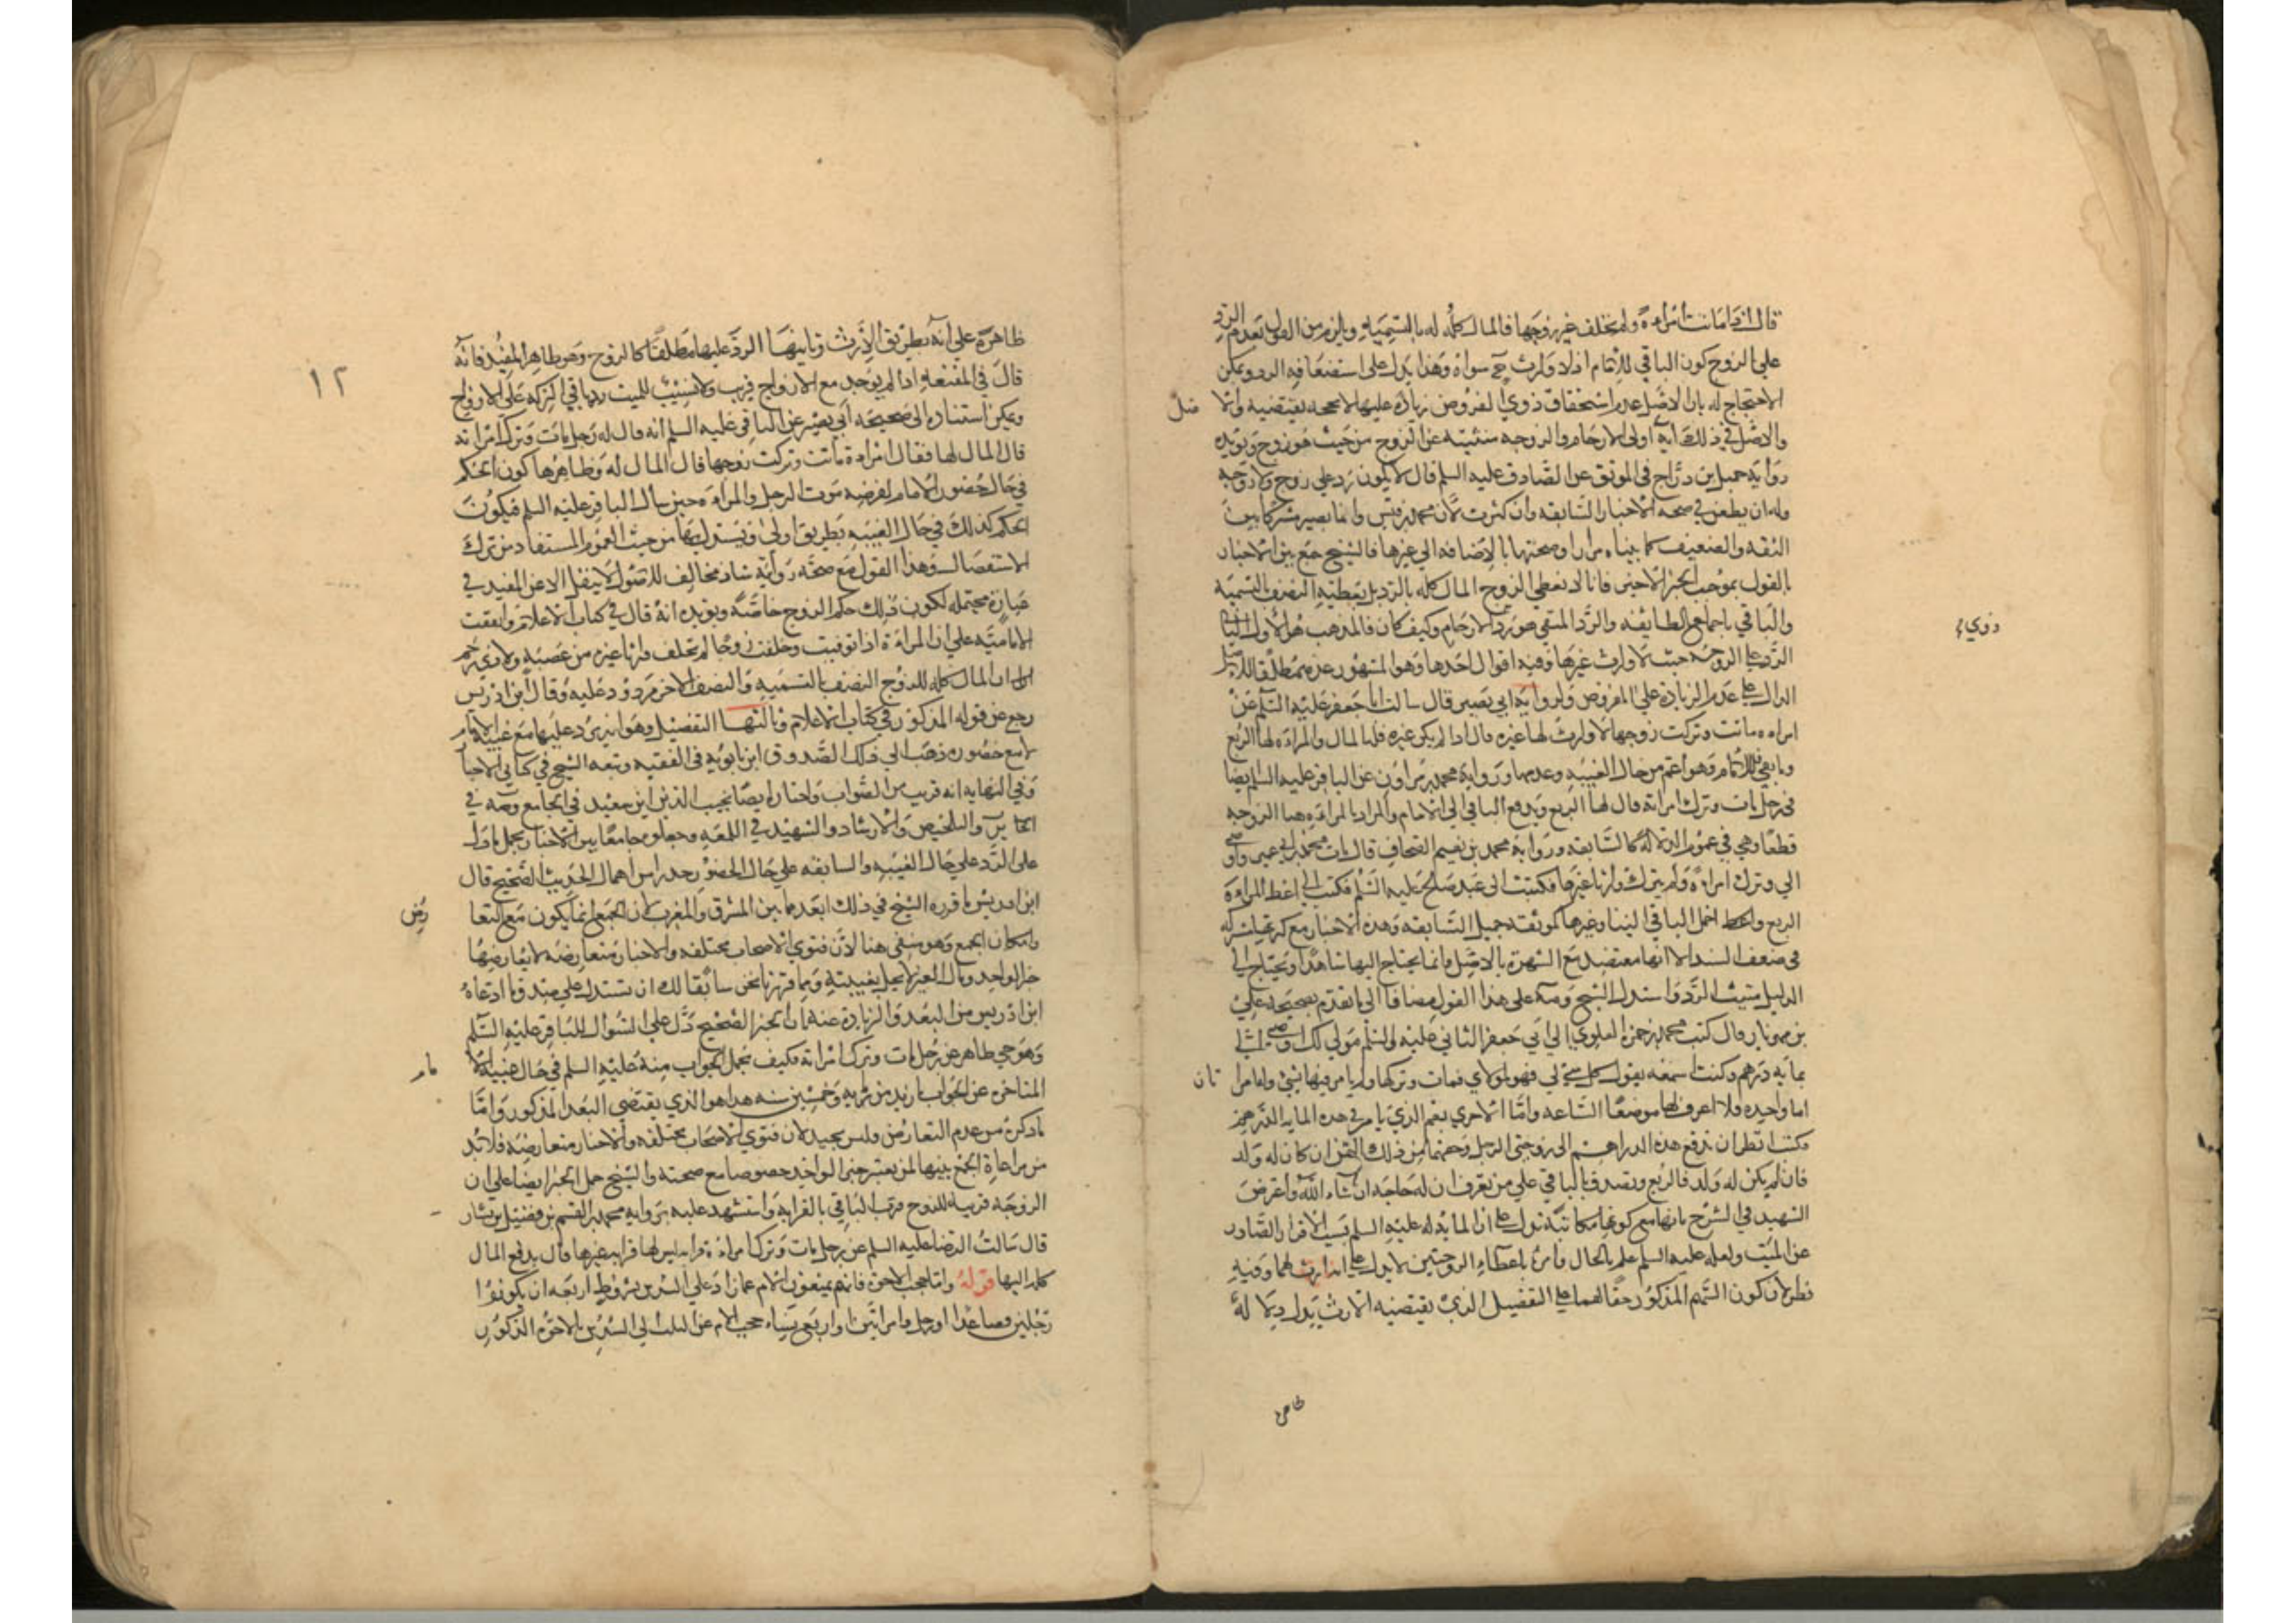 قال اذا ماتت امراة ولم تخلف غير زوجها فالمال كله له بالتسمية ويلزم من القول بعدم الرد
على الزوج كون الباقي للامام اذ لا وارث سواه وهذا يدل على استضعافه الرد ويمكن
الاحتجاج له بان الاصل عدم استحقاق ذوي الفروض زيادة عليها لا بحجة تقتضيه والا
صل
والاصل في ذلك آية اولى الارحام والزوجة منتفية عن الزوج من حيث هو زوج ويؤيده
رواية جميل بن دراج في الموثق عن الصادق عليه السلم قال لا يكون رد على زوج ولا زوجة
وله ان يطعن في صحة الاخبار السابقة وان كثرت لان محمد بن قيس وابا بصير مشتركا بين
الثقة والضعيف كما بيناه مرارا وصحتها بالاضافة الى غيرها فالشيخ جمع بين الاخبار
بالقول بموجب الخبر الاخير فانا لا نعطي الزوج المال كله بالرد بل نعطيه النصف بالتسمية
والباقي باجماع الطائفة والرد المنفي هو رد الارحام وكيف كان فالمذهب هو الاول
ذوي
الرد على الزوجة حيث لا وارث غيرها وفيه اقوال احدها وهو المشهور عدمه مطلقا للاصل
الدال على عدم الزيادة على المفروض ولرواية ابي بصير قال سالت ابا جعفر عليه السلم عن
امراة ماتت وتركت زوجها لا وارث لها غيره قال اذا لم يكن غيره فله المال والمراة لها الربع
وما بقي فللامام وهو اعم من حال الغيبة وعدمها ورواية محمد بن مروان عن الباقر عليه السلم ايضا
في رجل مات وترك امراته قال لها الربع ويدفع الباقي الى الامام والمراد بالمراة هنا الزوجة
قطعا وهي في عموم الدلالة كالسابقة ورواية محمد بن نعيم الصحاف قال مات محمد بن ابي عمير واوصى
الي وترك امراة ولم يترك وارثا غيرها فكتبت الى عبد صالح عليه السلم فكتب الي اعط المراة
الربع واحمل الباقي الينا وغيرها كموثقة جميل السابقة وهذه الاخبار مع كثرتها مشتركة
في ضعف السند الا انها معتضد مع الشهرة بالاصل وانما يحتاج اليها شاهدا ويحتاج الى
الدليل مثبت الرد واستدل الشيخ رحمه على هذا القول مضافا الى ما تقدم بصحيحة علي
بن مهزيار قال كتب محمد بن حمزة العلوي الى ابي جعفر الثاني عليه السلم مولى لك اوصى الي
بماية درهم وكنت اسمعه يقول كل شي لي فهو لمولاي فمات وتركها ولم يامر فيها بشئ وله امرا
تان
اما واحدة ولا اعرف لها موضعا الساعة واما الاخرى بقم الذي يامرني هذه الماية الدرهم
فكتب انظر ان تدفع هذه الدراهم الى زوجتي الرجل وحقهما من ذلك الثمن ان كان له ولد
فان لم يكن له ولد فالربع وتصدق بالباقي على من تعرف ان له حاجة ان شاء الله واعترض
الشهيد في الشرح بانها مع كونها مكاتبة تدل على ان الماية له عليه السلم بسبب الاقرار الصادر
عن الميت ولعله عليه السلم علم بالحال وامره باعطاء الزوجتين لا يدل على انه ارث لهما وفيه
نظر لان كون السهم المذكور حقا لهما على التفصيل الذي يقتضيه الارث يدل دلالة
ظاهرة
ظاهرة على انه بطريق الارث وثانيها الرد عليها مطلقا كالزوج وهو ظاهر المفيد فانه
١٢
قال في المقنعة اذا لم يوجد مع الازواج قريب ولا نسيب للميت رد باقي التركة على الازواج
ويمكن استناده الى صحيحة ابي بصير عن الباقر عليه السلم انه قال له رجل مات وترك امراته
قال المال لها فقال امراة ماتت وتركت زوجها قال المال له وظاهرها كون الحكم
في حال حضور الامام لفرضه موت الرجل والمراة حين سال الباقر عليه السلم فيكون
الحكم كذلك في حال الغيبة بطريق اولى ويستدل بها من حيث العموم المستفاد من ترك
الاستفصال وهذا القول مع صحة رواية شاذ مخالف للاصول لا ينقل الا عن المفيد في
عبارة محتملة لكون ذلك حكم الزوج خاصة ويؤيده انه قال في كتاب الاعلام واتفقت
الامامية على ان المراة اذا توفيت وخلفت زوجا لم تخلف وارثا غيره من عصبة ولا ذي رحم
ان المال كله للزوج النصف بالتسمية والنصف الاخر مردود عليه وقال ابن ادريس
رجع عن قوله المذكور في كتاب الاعلام وثالثها التفصيل وهو انه يرد عليها مع غيبة الامام
لا مع حضوره ذهب الى ذلك الصدوق ابن بابويه في الفقيه وتبعه الشيخ في كتابي الاخبار
وفي النهاية انه قريب من الصواب واختاره ايضا نجيب الدين ابن سعيد في الجامع ومه في
التحرير والتلخيص والارشاد والشهيد في اللمعة وجعلوه جامعا بين الاخبار بحمل ما دل
على الرد على حال الغيبة والسابقة على حال الحضور حذرا من اهمال الحديث الصحيح قال
ابن ادريس ما قربه الشيخ في ذلك ابعد مما بين المشرق والمغرب لان الجمع انما يكون مع التعا
رض
وامكان الجمع وهو منفي هنا لان فتوى الاصحاب مختلفة والاخبار متعارضة لا يعارضها
خبر الواحد ومال الغير لا يحل بغيبته وبما قررناه نحن سابقا لك ان تستدل على مبتدا وما ادعاه
ابن ادريس من البعد والزيادة عنه ان الخبر الصحيح دل على السؤال للباقر عليه السلم
وهو حي ظاهر عن رجل مات وترك امراته فكيف يحمل الجواب منه عليه السلم في حال غيبة الا
مام
المتاخرة عن الجواب بازيد من ماية وخمسين سنة هذا هو الذي يقتضي البعد المذكور واما
ما ذكره من عدم التعارض وليس بجيد لان فتوى الاصحاب مختلفة والاخبار متعارضة فلا بد
من مراعاة الجمع بينها لمن يعتبر خبر الواحد خصوصا مع صحته والشيخ حمل الخبر ايضا على ان
الزوجة قريبة للزوج فرتب الباقي بالقرابة واستشهد عليه برواية محمد بن القسم بن فضيل بن يسار
قال سالت الرضا عليه السلم عن رجل مات وترك امراة قرابة ليس لها قرابة غيرها قال يدفع المال
كله اليها قوله واما حجب الاخوة فانهم يمنعون الام عما زاد على السدس بشروط اربعة ان يكونوا
رجلين فصاعدا او رجل وامراتين او اربع نساء حجب الام عن الثلث الى السدس بالاخوة المذكورين